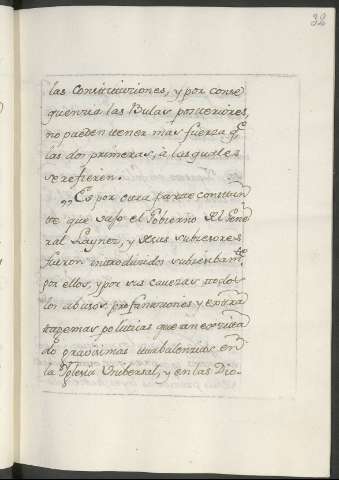 32
las Constituciones, y por conse
quencia las Bulas posteriores,
no pueden tener mas fuerza q.e
las dos primeras, à las quales
se refieren.
„Es por otra parte constan
te que bajo el Gobierno del Gene
ral Laynez, y de sus subcesores
fueron introducidos subrectiam.te
por ellos, y por sus cavezas todos
los abusos, profanaciones y extra
tagemas politicas que an excita
do gravisimas turbulencias en
la Yglesia Unibersal, y en las Dio-